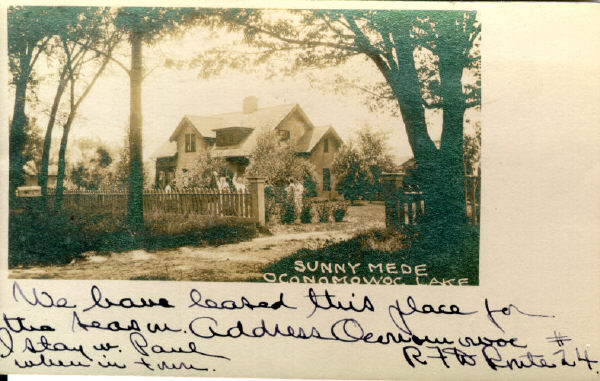 SUNNY MEDE
OCONOMOWOC LAKE
We have leased this place for
the season. Address Oconomowoc
I stay w. Paul R F D Route #24.
when in town.